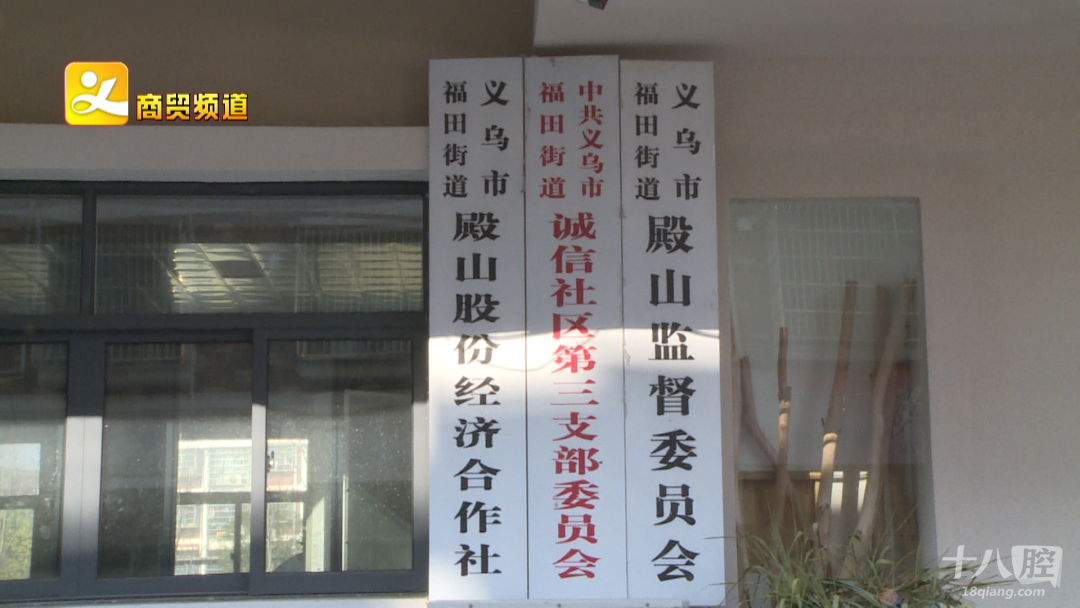 商贸频道
义乌市
福田街道
殿山股份经济合作社
中共义乌市
福田街道
诚信社区第三支部委员会
义乌市
福田街道
殿山监督委员会
十八腔
18qiang.com